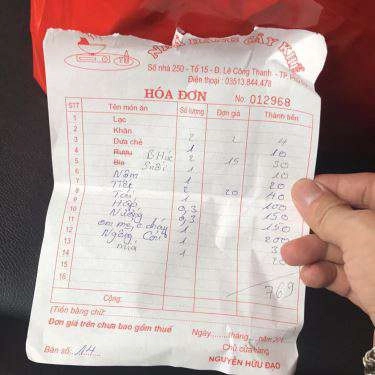 NHÀ HÀNG CÂY KHẾ
Số nhà 250 - Tổ 15 - Đ. Lê Công Thanh - TP
Điện thoại : 03513.844.478
HÓA ĐƠN
No: 012968
STT Tên món ăn Số lượng Đơn giá Thành tiền
1 Lạc
2 Khăn 2 2 4
3 Dưa chê 1 10
4 Rượu 2 15 30
5 Bia 1 10
6 Nộm 1 20
7 2 20 40
8 1 100
9 Hấp 0,3 150
10 Nướng 0,3 150
11 cháy 1
12 1 200
13 1
14
15
16
Cộng: 769
(Tiền bằng chữ:
Đơn giá trên chưa bao gồm thuế
Ngày......tháng.....năm 201
Bàn số: Chủ cửa hàng
NGUYỄN HỮU ĐẠO